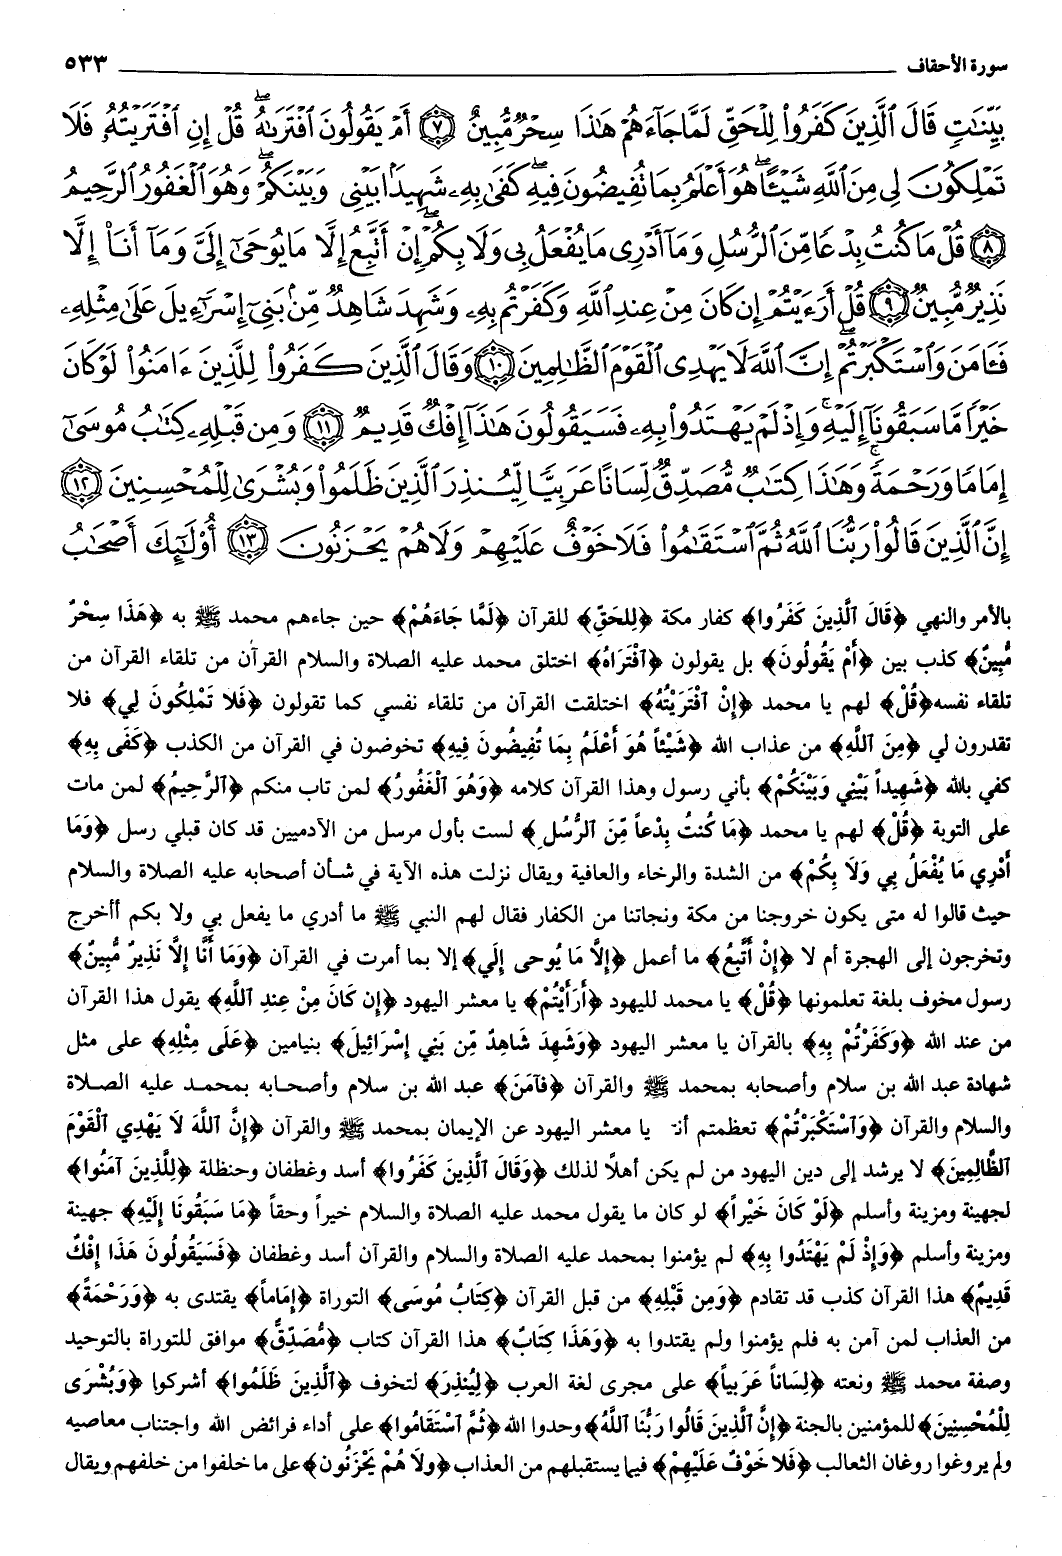 سورة الأحقاف ٥٣٣
بَيِّنَٰتٍ قَالَ ٱلَّذِينَ كَفَرُوا۟ لِلْحَقِّ لَمَّا جَآءَهُمْ هَٰذَا سِحْرٌ مُّبِينٌ ٧ أَمْ يَقُولُونَ ٱفْتَرَىٰهُ ۖ قُلْ إِنِ ٱفْتَرَيْتُهُۥ فَلَا
تَمْلِكُونَ لِى مِنَ ٱللَّهِ شَيْـًٔا ۖ هُوَ أَعْلَمُ بِمَا تُفِيضُونَ فِيهِ ۖ كَفَىٰ بِهِۦ شَهِيدًۢا بَيْنِى وَبَيْنَكُمْ ۖ وَهُوَ ٱلْغَفُورُ ٱلرَّحِيمُ
٨ قُلْ مَا كُنتُ بِدْعًا مِّنَ ٱلرُّسُلِ وَمَآ أَدْرِى مَا يُفْعَلُ بِى وَلَا بِكُمْ ۖ إِنْ أَتَّبِعُ إِلَّا مَا يُوحَىٰٓ إِلَىَّ وَمَآ أَنَا۠ إِلَّا
نَذِيرٌ مُّبِينٌ ٩ قُلْ أَرَءَيْتُمْ إِن كَانَ مِنْ عِندِ ٱللَّهِ وَكَفَرْتُم بِهِۦ وَشَهِدَ شَاهِدٌ مِّنۢ بَنِىٓ إِسْرَٰٓءِيلَ عَلَىٰ مِثْلِهِۦ
فَـَٔامَنَ وَٱسْتَكْبَرْتُمْ ۖ إِنَّ ٱللَّهَ لَا يَهْدِى ٱلْقَوْمَ ٱلظَّٰلِمِينَ ١٠ وَقَالَ ٱلَّذِينَ كَفَرُوا۟ لِلَّذِينَ ءَامَنُوا۟ لَوْ كَانَ
خَيْرًا مَّا سَبَقُونَآ إِلَيْهِ ۚ وَإِذْ لَمْ يَهْتَدُوا۟ بِهِۦ فَسَيَقُولُونَ هَٰذَآ إِفْكٌ قَدِيمٌ ١١ وَمِن قَبْلِهِۦ كِتَٰبُ مُوسَىٰٓ
إِمَامًا وَرَحْمَةً ۚ وَهَٰذَا كِتَٰبٌ مُّصَدِّقٌ لِّسَانًا عَرَبِيًّا لِّيُنذِرَ ٱلَّذِينَ ظَلَمُوا۟ وَبُشْرَىٰ لِلْمُحْسِنِينَ ١٢
إِنَّ ٱلَّذِينَ قَالُوا۟ رَبُّنَا ٱللَّهُ ثُمَّ ٱسْتَقَٰمُوا۟ فَلَا خَوْفٌ عَلَيْهِمْ وَلَا هُمْ يَحْزَنُونَ ١٣ أُو۟لَٰٓئِكَ أَصْحَٰبُ
بالأمر والنهي ﴿قَالَ ٱلَّذِينَ كَفَرُوا﴾ كفار مكة ﴿لِلحَقِّ﴾ للقرآن ﴿لَمَّا جَاءَهُمْ﴾ حين جاءهم محمد ﷺ به ﴿هَذَا سِحْرٌ
مُّبِينٌ﴾ كذب بين ﴿أَمْ يَقُولُونَ﴾ بل يقولون ﴿ٱفْتَرَاهُ﴾ اختلق محمد عليه الصلاة والسلام القرآن من تلقاء القرآن من
تلقاء نفسه ﴿قُلْ﴾ لهم يا محمد ﴿إِنْ ٱفْتَرَيْتُهُ﴾ اختلقت القرآن من تلقاء نفسي كما تقولون ﴿فَلا تَمْلِكُونَ لِي﴾ فلا
تقدرون لي ﴿مِنَ ٱللَّهِ﴾ من عذاب الله ﴿شَيْئاً هُوَ أَعْلَمُ بِمَا تُفِيضُونَ فِيهِ﴾ تخوضون في القرآن من الكذب ﴿كَفَى بِهِ﴾
كفي بالله ﴿شَهِيداً بَيْنِي وَبَيْنَكُمْ﴾ بأني رسول وهذا القرآن كلامه ﴿وَهُوَ ٱلْغَفُورُ﴾ لمن تاب منكم ﴿ٱلرَّحِيمُ﴾ لمن مات
على التوبة ﴿قُلْ﴾ لهم يا محمد ﴿مَا كُنتُ بِدْعاً مِّنَ ٱلرُّسُلِ﴾ لست بأول مرسل من الآدميين قد كان قبلي رسل ﴿وَمَا
أَدْرِي مَا يُفْعَلُ بِي وَلَا بِكُمْ﴾ من الشدة والرخاء والعافية ويقال نزلت هذه الآية في شأن أصحابه عليه الصلاة والسلام
حيث قالوا له متى يكون خروجنا من مكة ونجاتنا من الكفار فقال لهم النبي ﷺ ما أدري ما يفعل بي ولا بكم أأخرج
وتخرجون إلى الهجرة أم لا ﴿إِنْ أَتَّبِعُ﴾ ما أعمل ﴿إِلَّا مَا يُوحى إِلَي﴾ إلا بما أمرت في القرآن ﴿وَمَا أَنَّا إِلَّا نَذِيرٌ مُّبِينٌ﴾
رسول مخوف بلغة تعلمونها ﴿قُلْ﴾ يا محمد لليهود ﴿أَرَأَيْتُمْ﴾ يا معشر اليهود ﴿إِن كَانَ مِنْ عِندِ اللَّهِ﴾ يقول هذا القرآن
من عند الله ﴿وَكَفَرْتُمْ بِهِ﴾ بالقرآن يا معشر اليهود ﴿وَشَهِدَ شَاهِدٌ مِّن بَنِي إِسْرَائِيلَ﴾ بنيامين ﴿عَلَى مِثْلِهِ﴾ على مثل
شهادة عبد الله بن سلام وأصحابه بمحمد ﷺ والقرآن ﴿فآمَنَ﴾ عبد الله بن سلام وأصحابه بمحمد عليه الصلاة
والسلام والقرآن ﴿وَٱسْتَكْبَرْتُمْ﴾ تعظمتم يا معشر اليهود عن الإيمان بمحمد ﷺ والقرآن ﴿إِنَّ ٱللَّهَ لَا يَهْدِي ٱلْقَوْمَ
ٱلظَّالِمِينَ﴾ لا يرشد إلى دين اليهود من لم يكن أهلاً لذلك ﴿وَقَالَ ٱلَّذِينَ كَفَرُوا﴾ أسد وغطفان وحنظلة ﴿لِلَّذِينَ آمَنُوا﴾
لجهينة ومزينة وأسلم ﴿لَوْ كَانَ خَيْراً﴾ لو كان ما يقول محمد عليه الصلاة والسلام خيراً وحقاً ﴿مَا سَبَقُونَا إِلَيْهِ﴾ جهينة
ومزينة وأسلم ﴿وَإِذْ لَمْ يَهْتَدُوا بِهِ﴾ لم يؤمنوا بمحمد عليه الصلاة والسلام والقرآن أسد وغطفان ﴿فَسَيَقُولُونَ هَذَا إِفْكٌ
قَدِيمٌ﴾ هذا القرآن كذب قد تقادم ﴿وَمِن قَبْلِهِ﴾ من قبل القرآن ﴿كِتَابُ مُوسَى﴾ التوراة ﴿إِمَاماً﴾ يقتدى به ﴿وَرَحْمَةً﴾
من العذاب لمن آمن به فلم يؤمنوا ولم يقتدوا به ﴿وَهَذَا كِتَابٌ﴾ هذا القرآن كتاب ﴿مُّصَدِّقٌ﴾ موافق للتوراة بالتوحيد
وصفة محمد ﷺ ونعته ﴿لِسَاناً عَرَبِياً﴾ على مجرى لغة العرب ﴿لِيُنذِرَ﴾ لتخوف ﴿ٱلَّذِينَ ظَلَمُوا﴾ أشركوا ﴿وَبُشْرَى
لِلْمُحْسِنِينَ﴾ للمؤمنين بالجنة ﴿إِنَّ ٱلَّذِينَ قَالُوا رَبُّنَا ٱللَّهُ﴾ وحدوا الله ﴿ثُمَّ ٱسْتَقَامُوا﴾ على أداء فرائض الله واجتناب معاصيه
ولم يروغوا روغان الثعالب ﴿فَلا خَوْفٌ عَلَيْهِمْ﴾ فيما يستقبلهم من العذاب ﴿ولا هُمْ يَحْزَنُون﴾ على ما خلفوا من خلفهم ويقال